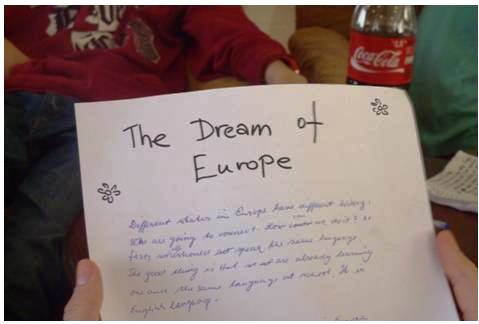 Coca-Cola
The Dream of
Europe
Different states in Europe have different history.
Who are going to connect. How can we do it? At
first, we should not speak the same language
The good thing is that most are already learning
one and the same language at school. It is
English language.